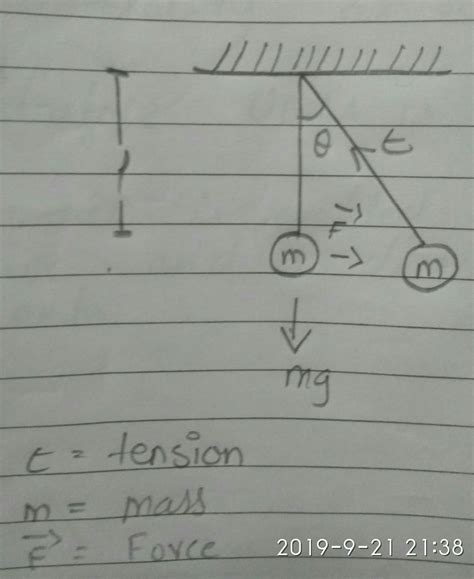 l
θ
t
F
m
m
mg
t = tension
m = mass
F = Force
2019-9-21 21:38